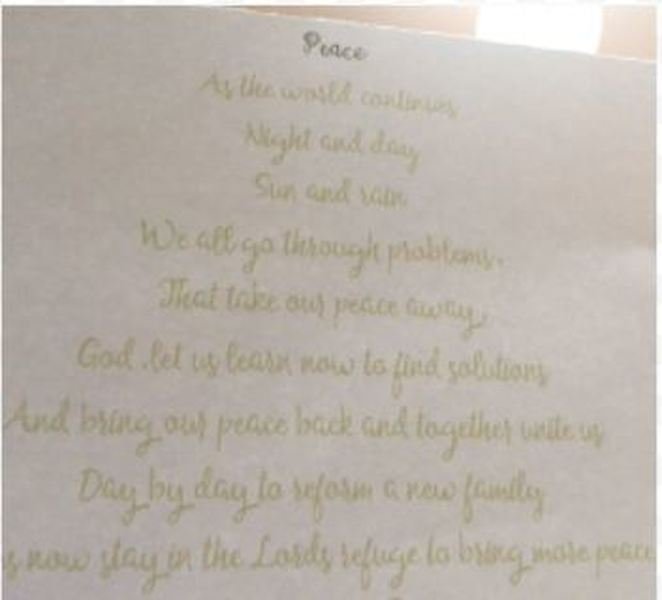 Peace
As the world continues
Night and day
Sun and rain
We all go through problems.
That take our peace away,
God .let us learn now to find solutions
And bring our peace back and together unite us
Day by day to reform a new family
now stay in the Lords refuge to bring more peace